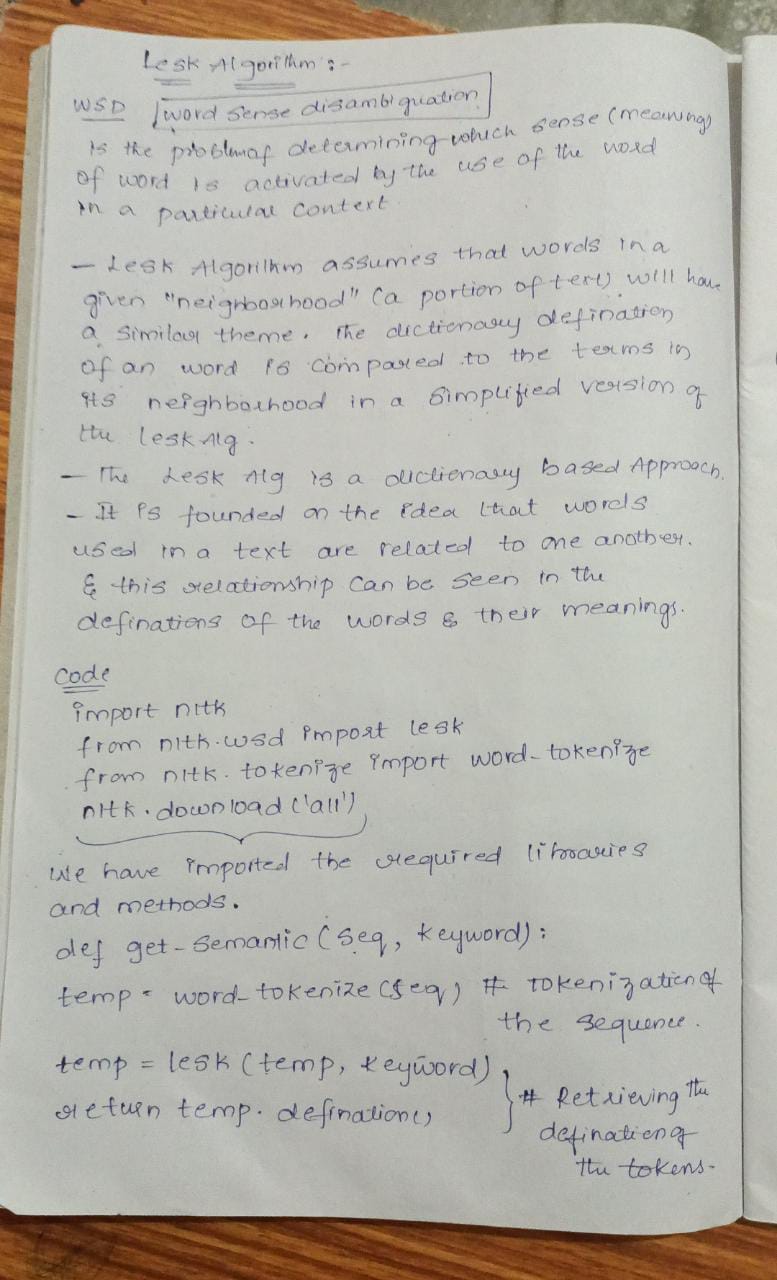 Lesk Algorithm :-
WSD word sense disambiguation
is the problem of determining which sense (meaning)
of word is activated by the use of the word
in a particular context
- Lesk Algorithm assumes that words in a
given "neighborhood" (a portion of text) will have
a similar theme. The dictionary defination
of an word is compared to the terms in
its neighborhood in a simplified version of
the lesk Alg.
- The Lesk Alg is a dictionary based Approach.
- It is founded on the idea that words
used in a text are related to one another.
& this relationship can be seen in the
definations of the words & their meanings.
Code
import nltk
from nltk.wsd import lesk
from nltk.tokenize import word-tokenize
nltk.download('all')
We have imported the required libraries
and methods.
def get-semantic (seq, keyword):
temp = word-tokenize (seq) # Tokenization of
the sequence.
temp = lesk (temp, keyword)
return temp.defination() # Retrieving the
defination of
the tokens-